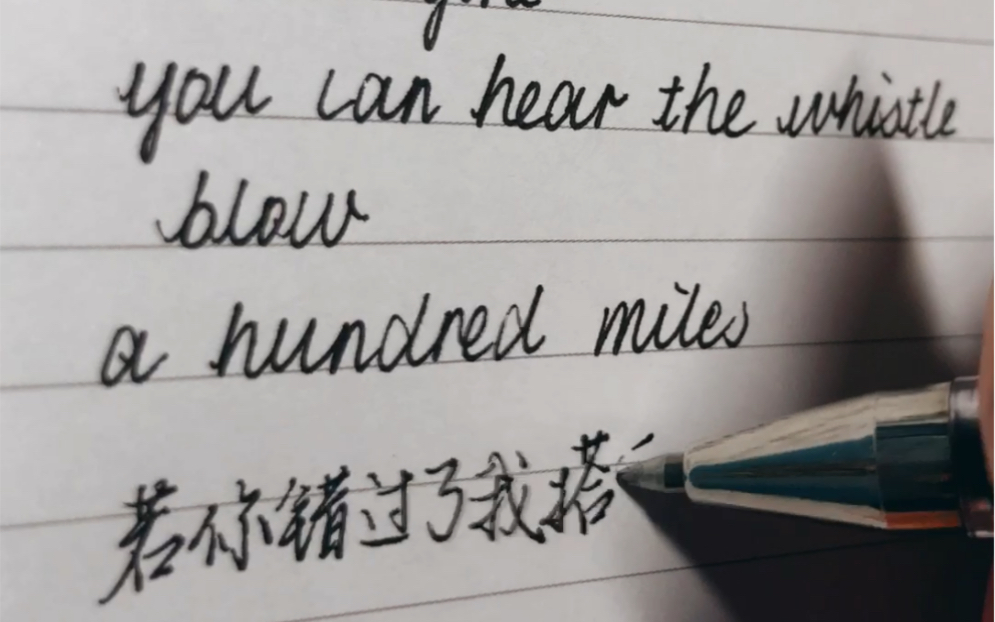 you can hear the whistle
blow
a hundred miles
若你错过了我搭